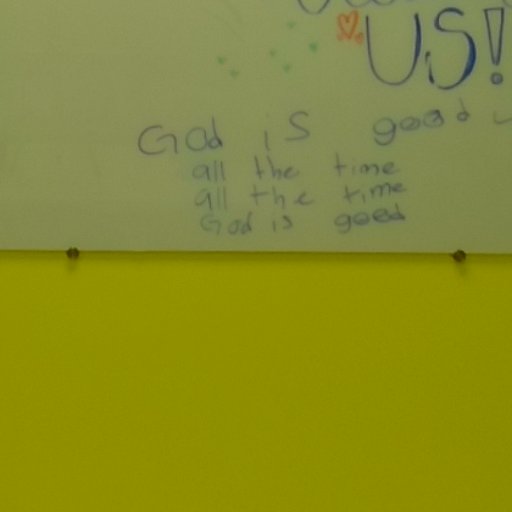 US!
God is good
all the time
all the time
God is good